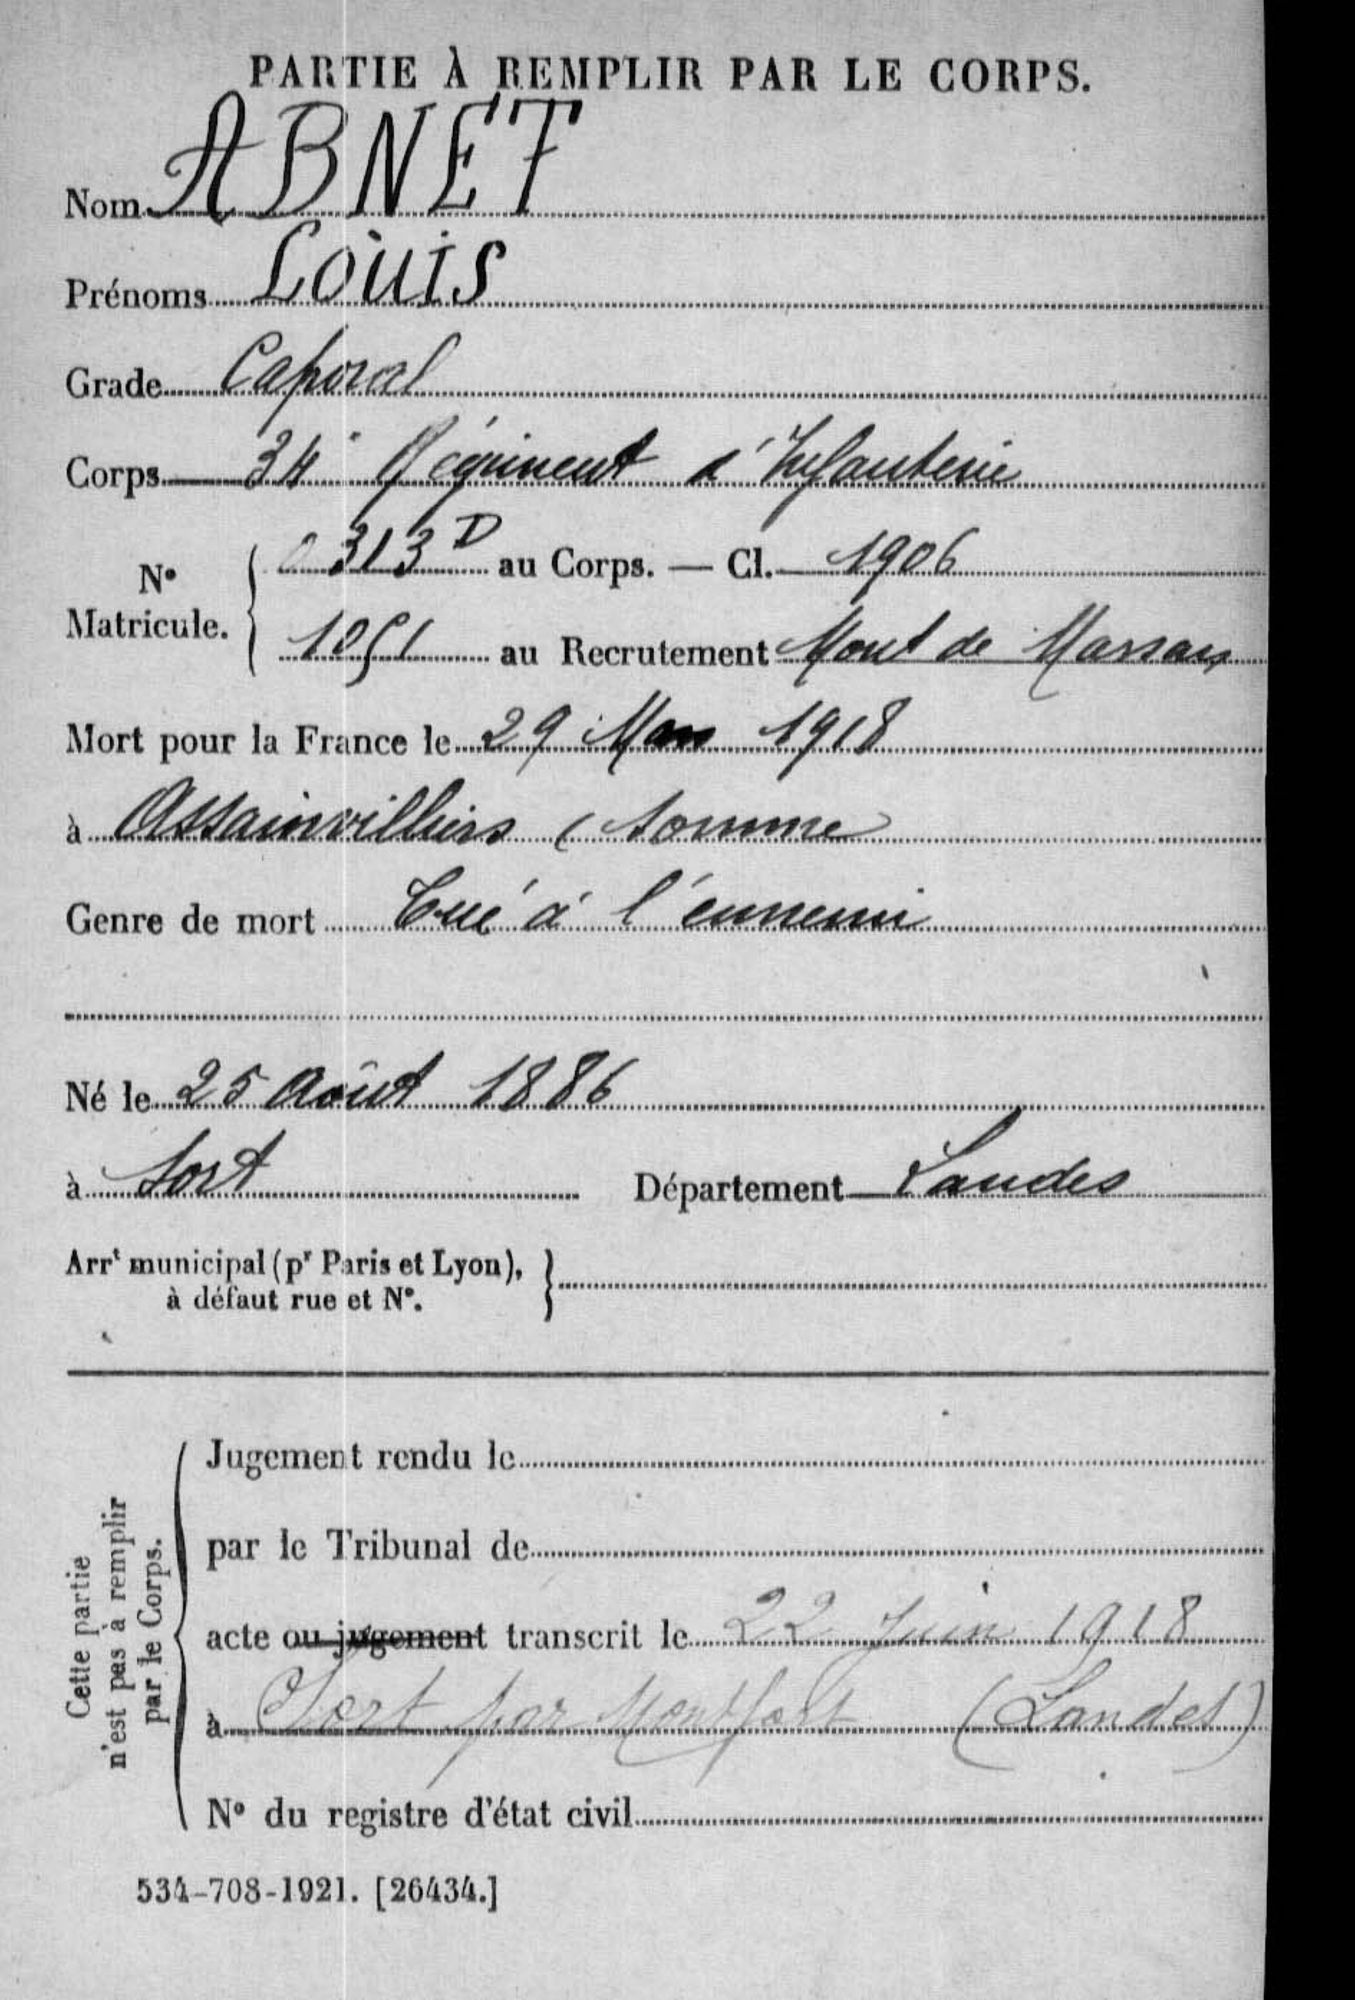 PARTIE À REMPLIR PAR LE CORPS.
Nom ABNET
Prénoms Louis
Grade Caporal
Corps 34e Régiment d'Infanterie
N° Matricule. 0 313 D au Corps. — Cl. 1906
1051 au Recrutement Mont de Marsan
Mort pour la France le 29 Mars 1918
à Assainvillers (Somme
Genre de mort Tué à l'ennemi
Né le 25 Août 1886
à Sort Département Landes
Arrt municipal (pr Paris et Lyon),
à défaut rue et N°.
Cette partie
n'est pas à remplir
par le Corps.
Jugement rendu le
par le Tribunal de
acte ou jugement transcrit le 22 Juin 1918
à Sort par Montfort (Landes)
N° du registre d'état civil
534-708-1921. [26434.]